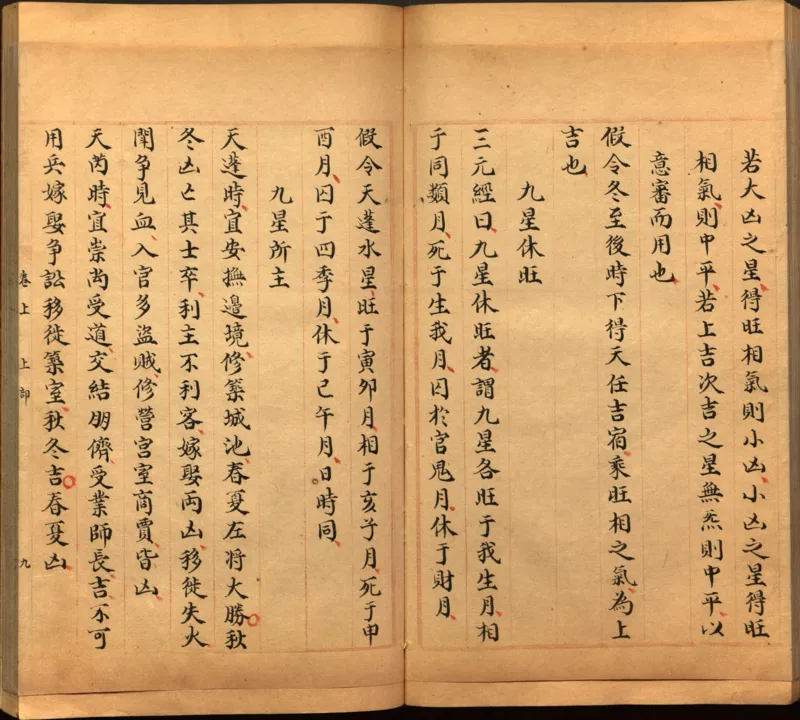 若大凶之星得旺相氣則小凶小凶之星得旺
相氣則中平若上吉次吉之星無炁則中平以
意審而用也
假令冬至後時下得天任吉宿乘旺相之氣為上
吉也
九星休旺
三元經曰九星休旺者謂九星各旺于我生月相
于同類月死于生我月囚於官鬼月休于財月
假令天蓬水星旺于寅卯月相于亥子月死于申
酉月囚于四季月休于己午月日時同
九星所主
天蓬時宜安撫邊境修築城池春夏左將大勝秋
冬凶亡其士卒利主不利客嫁娶兩凶移徙失火
鬪争見血入官多盜賊修營宮室商賈皆凶
天芮時宜崇尚受道交結朋儕受業師長吉不可
用兵嫁娶争訟移徙築室秋冬吉春夏凶
卷上 上部 九